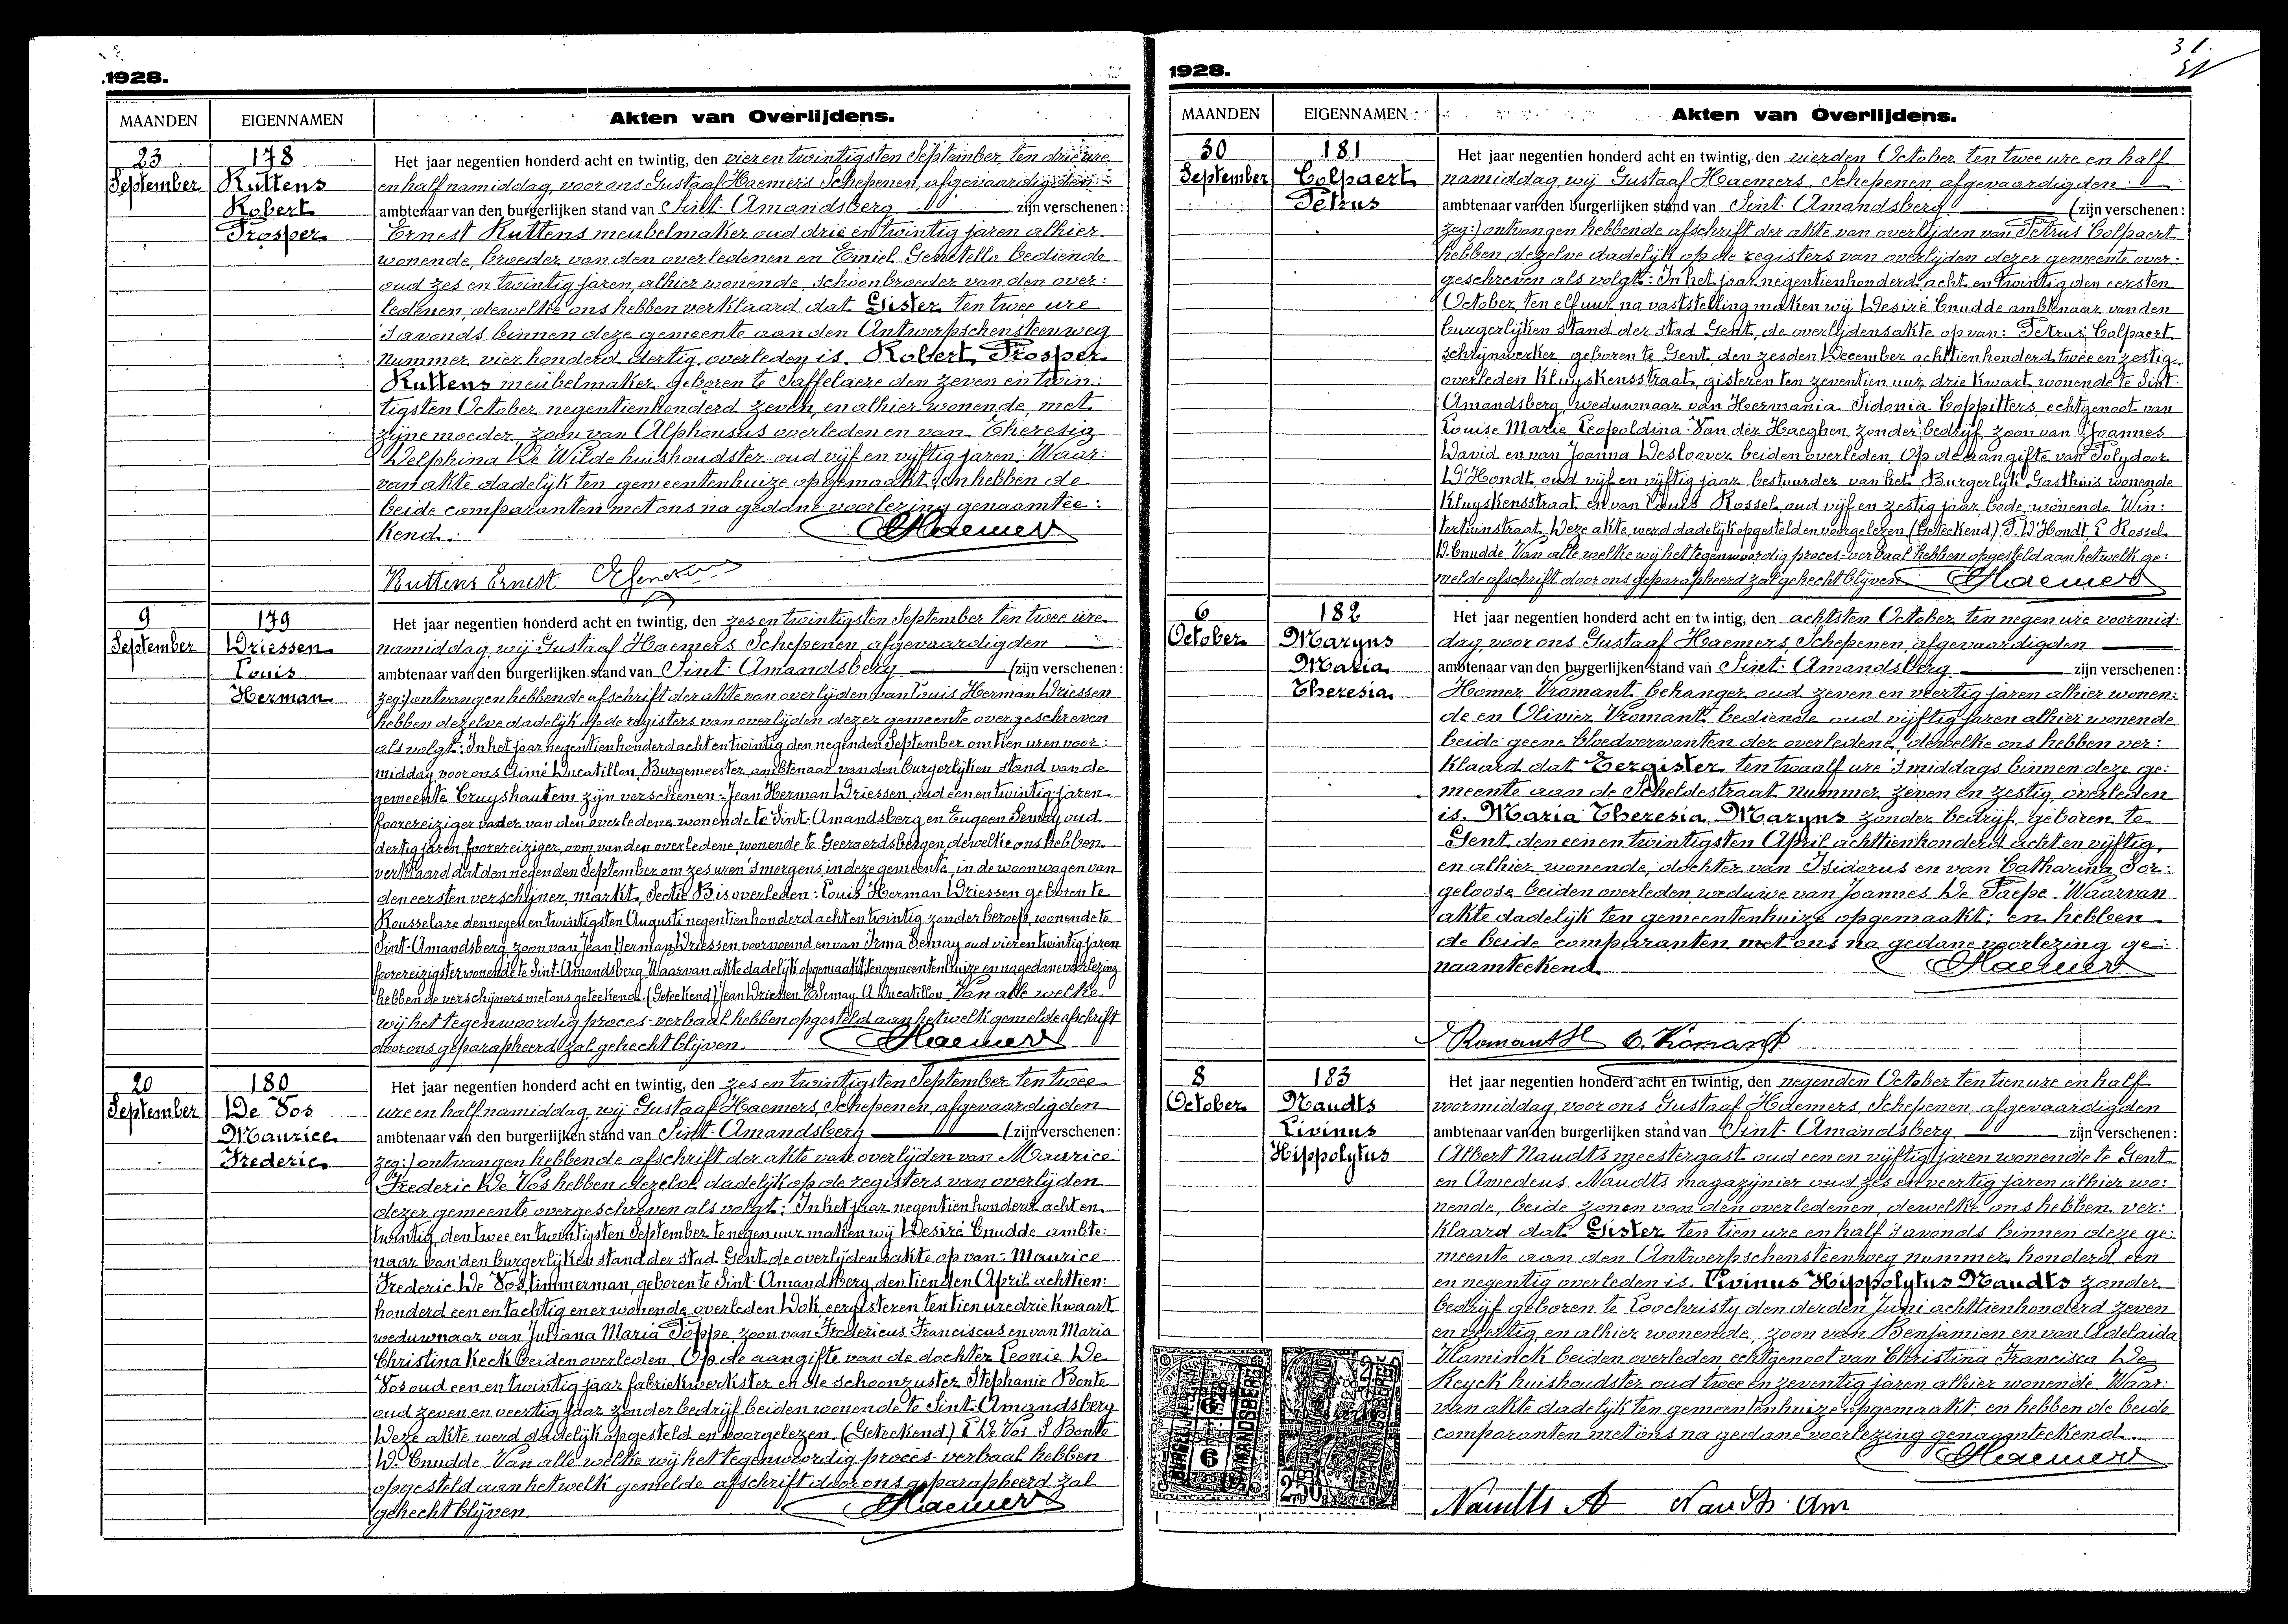 1928.
MAANDEN
EIGENNAMEN
Akten van Overlijdens.
23
September
178
Ruttens
Robert
Prosper
Het jaar negentien honderd acht en twintig, den vier en twintigsten September, ten drie ure
en half namiddag, voor ons Gustaaf Haemers Schepenen, afgevaardigden
ambtenaar van den burgerlijken stand van Sint-Amandsberg zijn verschenen:
Ernest Ruttens meubelmaker oud drie en twintig jaren alhier
wonende, broeder van den overledenen en Emiel Gemetello bediende
oud zes en twintig jaren alhier wonende, schoonbroeder van den over:
ledenen, dewelke ons hebben verklaard dat Gister ten twee ure
's avonds binnen deze gemeente aan den Antwerpschensteenweg
nummer vier honderd dertig overleden is Robert Prosper
Ruttens meubelmaker geboren te Saffelaere den zeven en twin:
tigsten October negentienhonderd zeven, en alhier wonende, met
zijne moeder, zoon van Alphonsus overleden en van Theresia
Delphina De Wilde huishoudster oud vijf en vijftig jaren. Waar:
van akte dadelijk ten gemeentenhuize opgemaakt en hebben de
beide comparanten met ons na gedane voorlezing genaamtee:
kend.
GHaemers
Ruttens Ernest
9
September
179
Driessen
Louis
Herman
Het jaar negentien honderd acht en twintig, den zes en twintigsten September ten twee ure
namiddag wij Gustaaf Haemers Schepenen, afgevaardigden
ambtenaar van den burgerlijken stand van Sint-Amandsberg (zijn verschenen:
zeg:) ontvangen hebbende afschrift der akte van overlijden van Louis Herman Driessen
hebben dezelve dadelijk op de registers van overlijden dezer gemeente overgeschreven
als volgt: In het jaar negentienhonderd acht en twintig den negenden September om tien uren voor:
middag voor ons Aimé Ducatillon, Burgemeester, ambtenaar van den burgerlijken stand van de
gemeente Cruyshautem zijn verschenen: Jean Herman Driessen oud een en twintig jaren
foorereiziger vader van den overledene wonende te Sint-Amandsberg en Eugeen Semay oud
dertig jaren, foorereiziger, oom van den overledene, wonende te Geeraerdsbergen, dewelke ons hebben
verklaard dat den negenden September om zes uren 's morgens in deze gemeente, in de woonwagen van
den eersten verschijner, markt, Sectie B is overleden: Louis Herman Driessen geboren te
Rousselare den negen en twintigsten Augusti negentien honderd acht en twintig zonder beroep, wonende te
Sint-Amandsberg zoon van Jean Herman Driessen voornoemd en van Irma Semay oud vier en twintig jaren
foorereizigster wonende te Sint-Amandsberg. Waarvan akte dadelijk opgemaakt ten gemeentenhuize en na gedane voorlezing
hebben de verschijners met ons geteekend. (Geteekend) Jean Driessen E Semay A Ducatillon. Van alle welke
wij het tegenwoordig proces-verbaal hebben opgesteld aan hetwelk gemelde afschrift
door ons geparapheerd zal gehecht blijven.
GHaemers
20
September
180
De Vos
Maurice
Frederic
Het jaar negentien honderd acht en twintig, den zes en twintigsten September ten twee
ure en half namiddag wij Gustaaf Haemers, Schepenen, afgevaardigden
ambtenaar van den burgerlijken stand van Sint-Amandsberg (zijn verschenen:
zeg:) ontvangen hebbende afschrift der akte van overlijden van Maurice
Frederic De Vos hebben dezelve dadelijk op de registers van overlijden
dezer gemeente overgeschreven als volgt: In het jaar negentien honderd acht en
twintig, den twee en twintigsten September te negen uur maken wij Desiré Cnudde ambte:
naar van den burgerlijken stand der stad Gent de overlijdensakte op van: Maurice
Frederic De Vos, timmerman, geboren te Sint-Amandsberg, den tienden April achttien:
honderd een en tachtig en er wonende, overleden Dok, eergisteren ten tien ure drie kwaart
weduwnaar van Juliana Maria Poppe, zoon van Fredericus Franciscus en van Maria
Christina Keck beiden overleden. Op de aangifte van de dochter Leonie De
Vos oud een en twintig jaar fabriekwerkster en de schoonzuster Stephanie Bonte
oud zeven en veertig jaar zonder bedrijf beiden wonende te Sint-Amandsberg
Deze akte werd dadelijk opgesteld en voorgelezen. (Geteekend) L De Vos S Bonte
D. Cnudde. Van alle welke wij het tegenwoordig proces-verbaal hebben
opgesteld aan hetwelk gemelde afschrift door ons geparapheerd zal
gehecht blijven.
GHaemers
31
1928.
MAANDEN
EIGENNAMEN
Akten van Overlijdens.
30
September
181
Colpaert
Petrus
Het jaar negentien honderd acht en twintig, den vierden October ten twee ure en half
namiddag, wij Gustaaf Haemers, Schepenen, afgevaardigden
ambtenaar van den burgerlijken stand van Sint-Amandsberg (zijn verschenen:
zeg:) ontvangen hebbende afschrift der akte van overlijden van Petrus Colpaert
hebben dezelve dadelijk op de registers van overlijden dezer gemeente over:
geschreven als volgt: In het jaar negentienhonderd acht en twintig den eersten
October, ten elf uur, na vaststelling maken wij Desiré Cnudde ambtenaar van den
burgerlijken stand der stad Gent, de overlijdensakte op van: Petrus Colpaert
schrijnwerker geboren te Gent, den zesden December achttienhonderd twee en zestig
overleden Kluyskensstraat, gisteren ten zeventien uur drie kwart wonende te Sint-
Amandsberg, weduwnaar van Hermania Sidonia Coppitters, echtgenoot van
Louise Marie Leopoldina Van der Haeghen, zonder bedrijf, zoon van Joannes
David en van Joanna Desloover beiden overleden. Op de aangifte van Polydoor
D'Hondt, oud vijf en vijftig jaar bestuurder van het Burgerlijk Gasthuis wonende
Kluyskensstraat en van Louis Rossel, oud vijf en zestig jaar, bode, wonende Win:
tertuinstraat. Deze akte, werd dadelijk opgesteld en voorgelezen (Geteekend) P. D'Hondt, L Rossel
D. Cnudde. Van alle welke wij het tegenwoordig proces-verbaal hebben opgesteld aan hetwelk ge:
melde afschrift door ons geparapheerd zal gehecht blijven
GHaemers
6
October
182
Maryns
Maria
Theresia
Het jaar negentien honderd acht en twintig, den achtsten October ten negen ure voormid:
dag, voor ons Gustaaf Haemers, Schepenen, afgevaardigden
ambtenaar van den burgerlijken stand van Sint-Amandsberg zijn verschenen:
Homer Vromant behanger oud zeven en veertig jaren alhier wonen:
de en Olivier Vromant bediende oud vijftig jaren alhier wonende
beide geene bloedverwanten der overledene, dewelke ons hebben ver:
klaard dat Eergister ten twaalf ure 's middags binnen deze ge:
meente aan de Scheldestraat nummer zeven en zestig overleden
is Maria Theresia Maryns zonder bedrijf, geboren te
Gent den een en twintigsten April achttienhonderd acht en vijftig,
en alhier wonende, dochter van Isidorus en van Catharina Sor:
geloose beiden overleden, weduwe van Joannes De Paepe. Waarvan
akte dadelijk ten gemeentenhuize opgemaakt; en hebben
de beide comparanten met ons na gedane voorlezing ge:
naamteekend.
GHaemers
Vromant H O. Vromant
8
October
183
Naudts
Livinus
Hippolytus
Het jaar negentien honderd acht en twintig, den negenden October ten tien ure en half
voormiddag, voor ons Gustaaf Haemers, Schepenen, afgevaardigden
ambtenaar van den burgerlijken stand van Sint-Amandsberg zijn verschenen:
Albert Naudts meestergast oud een en vijftig jaren wonende te Gent
en Amedeus Naudts magazijnier oud zes en veertig jaren alhier wo:
nende, beide zonen van den overledenen, dewelke ons hebben ver:
klaard dat Gister ten tien ure en half 's avonds binnen deze ge:
meente aan den Antwerpschensteenweg nummer honderd een
en negentig overleden is Livinus Hippolytus Naudts zonder
bedrijf geboren te Loochristy den derden Juni achttienhonderd zeven
en veertig en alhier wonende, zoon van Benjamien en van Adelaida
Vlaminck beiden overleden echtgenoot van Christina Francisca De
Reyck huishoudster oud twee en zeventig jaren, alhier wonende. Waar:
van akte dadelijk ten gemeentenhuize opgemaakt; en hebben de beide
comparanten met ons na gedane voorlezing genaamteekend.
GHaemers
Naudts A Naudts Am